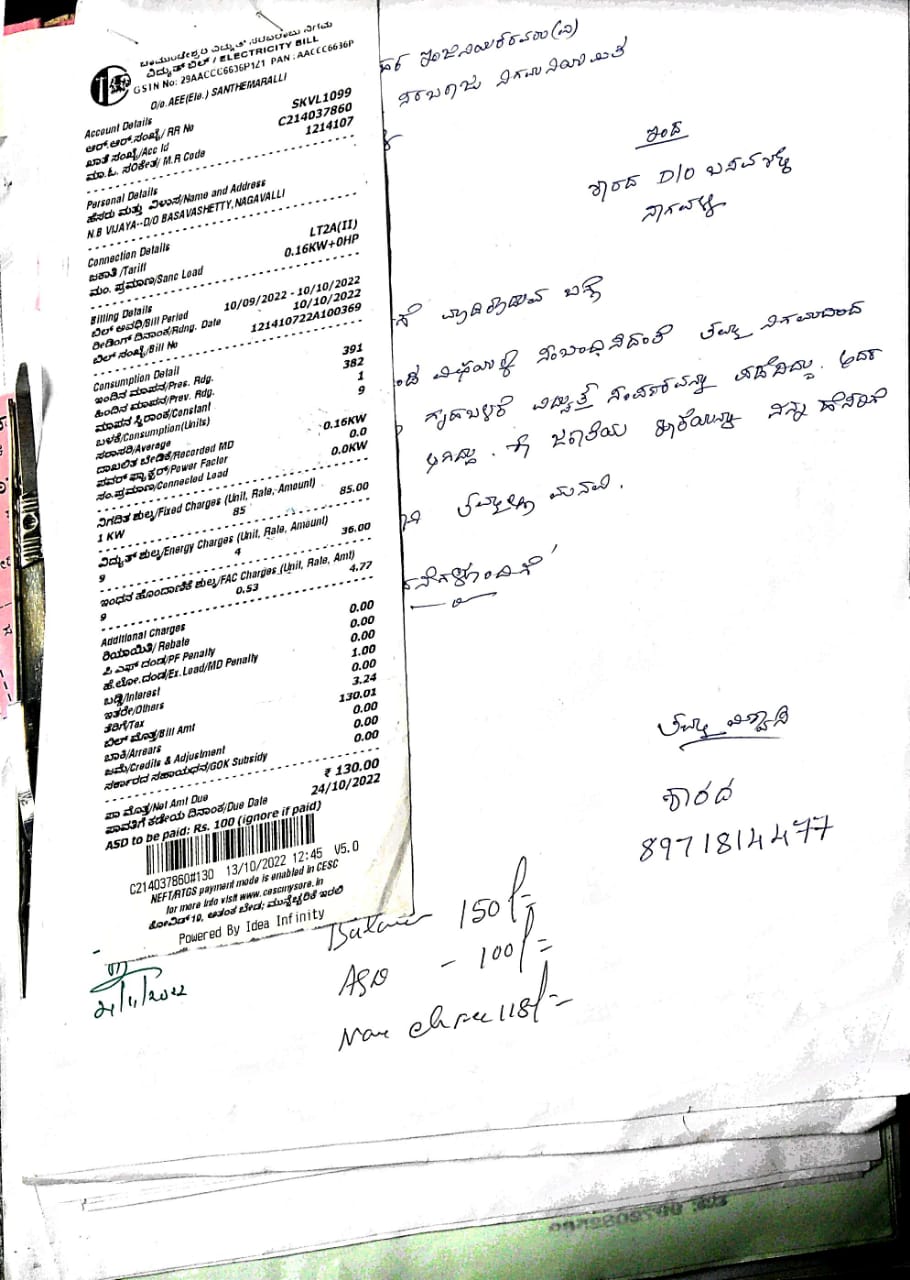 ಚಾಮುಂಡೇಶ್ವರಿ ವಿದ್ಯುತ್ ಸರಬರಾಜು ನಿಗಮ
ವಿದ್ಯುತ್ ಬಿಲ್ / ELECTRICITY BILL
GSIN No: 29AACCC6636P1Z1 PAN: AACCC6636P
O/o.AEE(Ele.) SANTHEMARALLI
Account Details
ಆರ್.ಆರ್.ಸಂಖ್ಯೆ/ RR No SKVL1099
ಖಾತೆ ಸಂಖ್ಯೆ/Acc Id C214037860
ಮಾ.ಓ. ಸಂಕೇತ/ M.R Code 1214107
Personal Details
ಹೆಸರು ಮತ್ತು ವಿಳಾಸ/Name and Address
N.B VIJAYA--D/O BASAVASHETTY,NAGAVALLI
Connection Details
ಜಕಾತಿ /Tariff LT2A(II)
ಮಂ. ಪ್ರಮಾಣ/Sanc Load 0.16KW+0HP
Billing Details
ಬಿಲ್ ಅವಧಿ/Bill Period 10/09/2022 - 10/10/2022
ರೀಡಿಂಗ್ ದಿನಾಂಕ/Rdng. Date 10/10/2022
ಬಿಲ್ ಸಂಖ್ಯೆ/Bill No 121410722A100369
Consumption Detail
ಇಂದಿನ ಮಾಪನ/Pres. Rdg. 391
ಹಿಂದಿನ ಮಾಪನ/Prev. Rdg. 382
ಮಾಪನ ಸ್ಥಿರಾಂಕ/Constant 1
ಬಳಕೆ/Consumption(Units) 9
ಸರಾಸರಿ/Average
ದಾಖಲಿತ ಬೇಡಿಕೆ/Recorded MD 0.16KW
ಪವರ್ ಫ್ಯಾಕ್ಟರ್/Power Factor 0.0
ಸಂ.ಪ್ರಮಾಣ/Connected Load 0.0KW
ನಿಗದಿತ ಶುಲ್ಕ/Fixed Charges (Unit, Rate, Amount)
1 KW 85 85.00
ವಿದ್ಯುತ್ ಶುಲ್ಕ/Energy Charges (Unit, Rate, Amount)
9 4 36.00
ಇಂಧನ ಹೊಂದಾಣಿಕೆ ಶುಲ್ಕ/FAC Charges (Unit, Rate, Amt)
9 0.53 4.77
Additional Charges
ರಿಯಾಯಿತಿ/ Rebate 0.00
ಪಿ ಎಫ್ ದಂಡ/PF Penalty 0.00
ಹೆ.ಲೋ.ದಂಡ/Ex.Load/MD Penalty 0.00
ಬಡ್ಡಿ/Interest 1.00
ಇತರೇ/Others 0.00
ತೆರಿಗೆ/Tax 3.24
ಬಿಲ್ ಮೊತ್ತ/Bill Amt 130.01
ಬಾಕಿ/Arrears 0.00
ಜಮೆ/Credits & Adjustment 0.00
ಸರ್ಕಾರದ ಸಹಾಯಧನ/GOK Subsidy 0.00
ಪಾ ಮೊತ್ತ/Net Amt Due ₹ 130.00
ಪಾವತಿಗೆ ಕಡೇಯ ದಿನಾಂಕ/Due Date 24/10/2022
ASD to be paid: Rs. 100 (ignore if paid)
C214037860#130 13/10/2022 12:45 V5.0
NEFT/RTGS payment mode is enabled in CESC
for more info visit www.cescmysore.in
ಕೋವಿಡ್ 19, ಆತಂಕ ಬೇಡ; ಮುನ್ನೆಚ್ಚರಿಕೆ ಇರಲಿ
Powered By Idea Infinity
ಇಂದ
ಶಾರದ D/O ಬಸವಶೆಟ್ಟಿ
ನಾಗವಳ್ಳಿ
ಬಗ್ಗೆ
ವಿಷಯಕ್ಕೆ ಸಂಬಂಧಿಸಿದಂತೆ ತಮ್ಮ ನಿಗಮದಿಂದ
ಗೃಹಬಳಕೆ ವಿದ್ಯುತ್ ಸಂಪರ್ಕವನ್ನು ಪಡೆದಿದ್ದು.
ತಮ್ಮಲ್ಲಿ ಮನವಿ.
ತಮ್ಮ ವಿಶ್ವಾಸಿ
ಶಾರದ
8971814477
150/=
ASD - 100/=
118/=